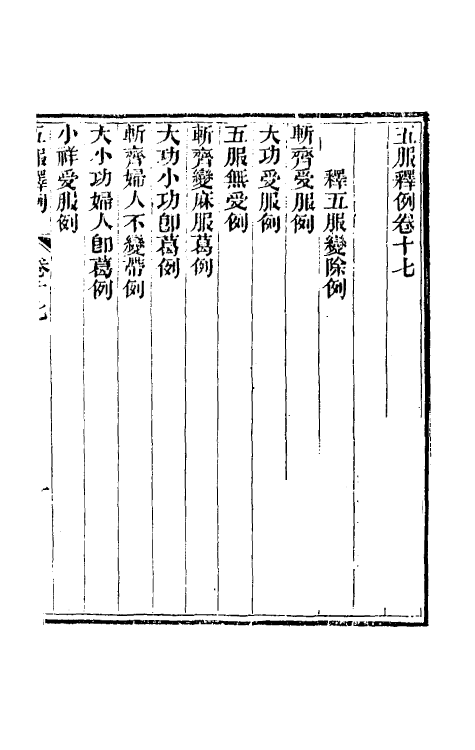 五服釋例卷十七
釋五服變除例
斬齊受服例
大功受服例
五服無受例
斬齊變麻服葛例
大功小功卽葛例
斬齊婦人不變帶例
大小功婦人卽葛例
小祥受服例
五服釋例 卷十七 一